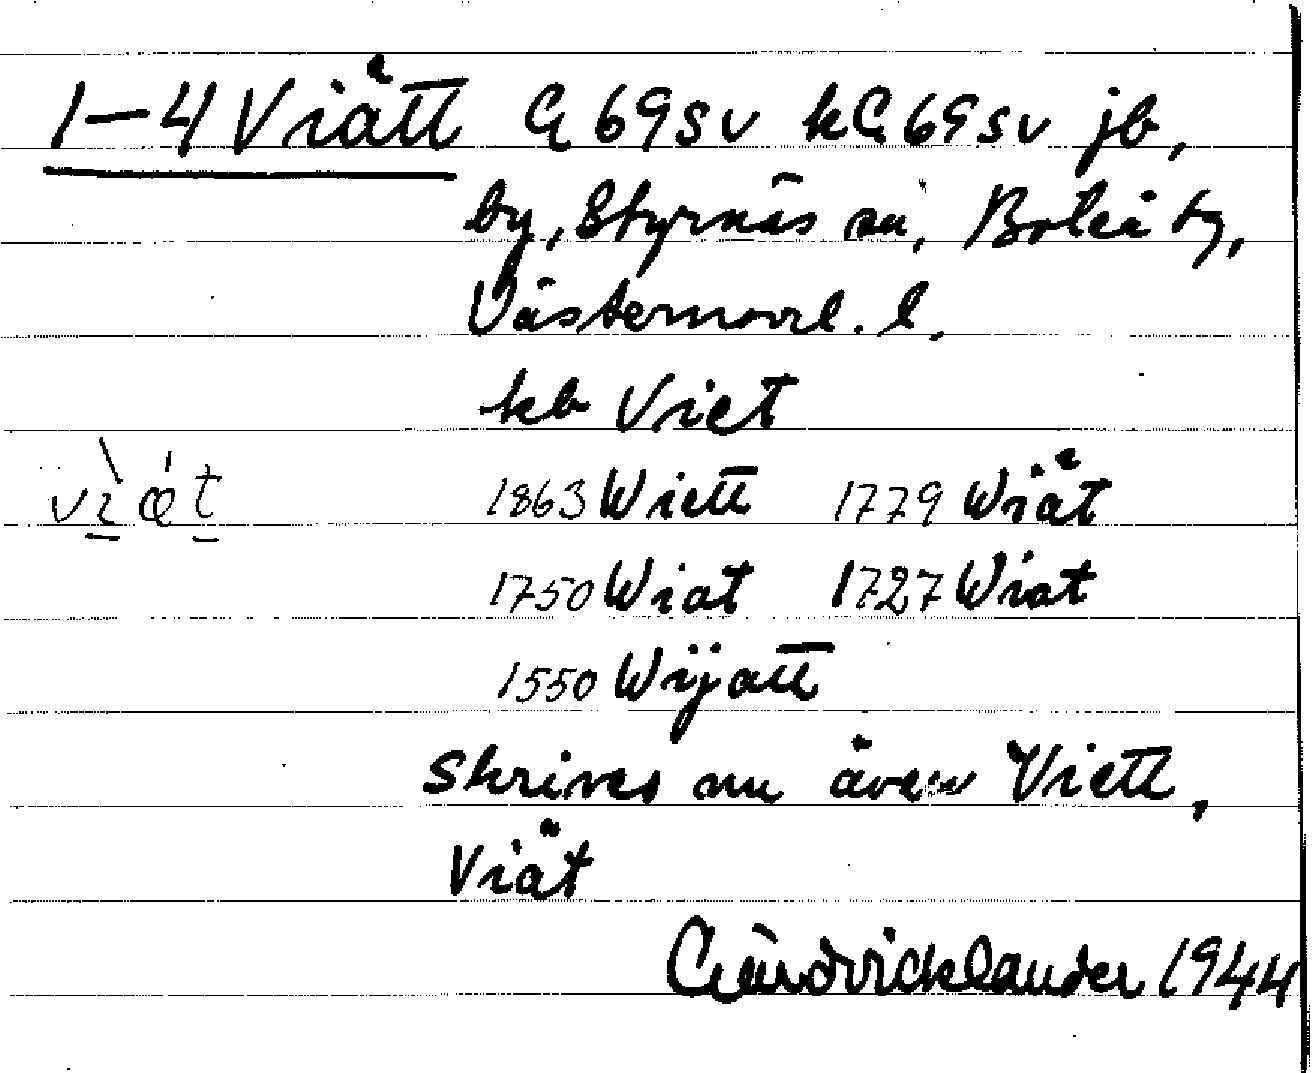 1–4 Viätt G 69 sv kG 69 sv jb,
by, Styrnäs sn, Boteå tg,
Västernorrl. l.
kb Viet
1863 Wiett 1779 Wiät
1750 Wiat 1727 Wiat
1550 Wijatt
Skrives nu även Viett,
Viät
1944